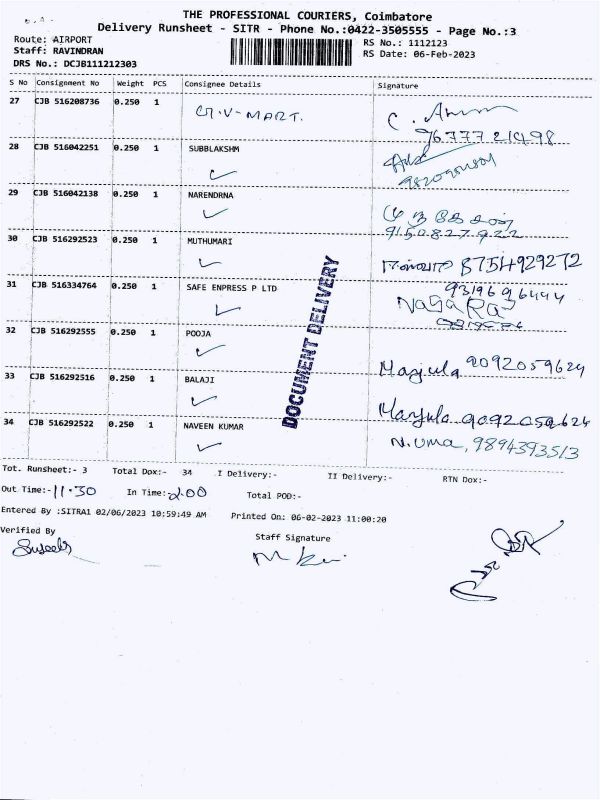 THE PROFESSIONAL COURIERS, Coimbatore
Delivery Runsheet - SITR - Phone No.:0422-3505555 - Page No.:3
Route: AIRPORT
RS No.: 1112123
Staff: RAVINDRAN
RS Date: 06-Feb-2023
DRS No.: DCJB111212303
S No Consignment No Weight PCS Consignee Details Signature
27 CJB 516208736 0.250 1 G.V-MART.
9677721498
28 CJB 516042251 0.250 1 SUBBLAKSHM
29 CJB 516042138 0.250 1 NARENDRNA
9150827922
30 CJB 516292523 0.250 1 MUTHUMARI
8754929272
31 CJB 516334764 0.250 1 SAFE ENPRESS P LTD
NAGARAJ
32 CJB 516292555 0.250 1 POOJA
Manjula 9092059624
33 CJB 516292516 0.250 1 BALAJI
Manjula 9092059624
34 CJB 516292522 0.250 1 NAVEEN KUMAR
N.Uma, 9894393513
DOCUMENT DELIVERY
Tot. Runsheet:- 3 Total Dox:- 34 I Delivery:- II Delivery:- RTN Dox:-
Out Time:- 11.30 In Time:- 2.00 Total POD:-
Entered By :SITRA1 02/06/2023 10:59:49 AM Printed On: 06-02-2023 11:00:20
Verified By
Staff Signature